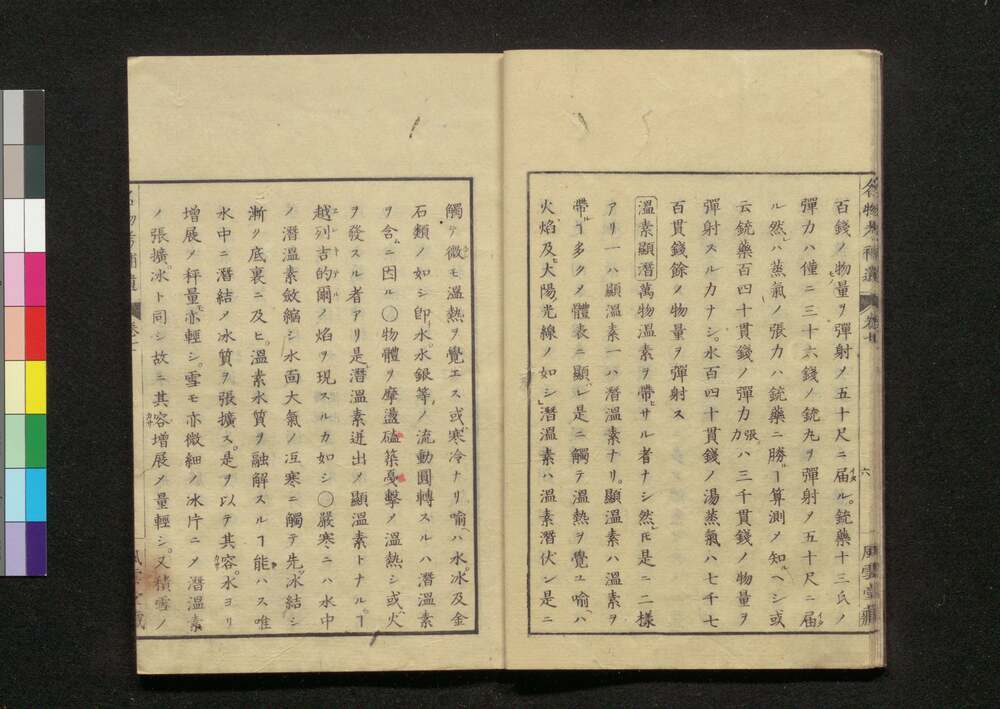 百錢ノ物量ヲ彈射メ五十尺ニ届ル。銃藥十三氏ノ
彈力ハ僅ニ三十六錢ノ銃丸ヲ彈射メ五十尺ニ届
ル然ハ蒸氣ノ張力ハ銃藥ニ勝ヿ算測メ知ヘシ或
云銃藥百四十貫錢ノ彈力ハ三千貫錢ノ物量ヲ
彈射スルカナシ。水百四十貫錢ノ湯蒸氣ハ七千七
百貫錢餘ノ物量ヲ彈射ス
溫素顯潛 萬物溫素ヲ帶サル者ナシ然𪜈是ニ二樣
アリ一ハ顯溫素一ハ潛溫素ナリ。顯溫素ハ溫素ヲ
帶ヿ多クメ體表ニ顯レ是ニ觸テ溫熱ヲ覺ユ喻ハ
火焰及大陽光線ノ如シ潛溫素ハ溫素潛伏シ是ニ
觸テ微モ溫熱ヲ覺エス或寒冷ナリ喻ハ水。冰。及金
石類ノ如シ即水。水銀等ノ流動圓轉スルハ潛溫素
ヲ含ニ因ル〇物體ヲ摩盪磕築戞擊メ溫熱シ或火
ヲ發スル者アリ是潛溫素迸出メ顯溫素トナルヿ
越列吉的爾ノ焰ヲ現スルカ如シ〇嚴寒ニハ水中
ノ潛溫素斂縮シ水面大氣ノ冱寒ニ觸テ先冰結シ
漸ク底裏ニ及ヒ。溫素水質ヲ融解スルヿ能ハス唯
水中ニ潛結メ冰質ヲ張擴ス。是ヲ以テ其容水ヨリ
增展メ秤量亦輕シ。雪モ亦微細ノ冰片ニメ潛溫素
ノ張擴冰ト同シ故ニ其容增展メ量輕シ。又積雪ノ
名物考補遺
卷七
六
風雲堂藏